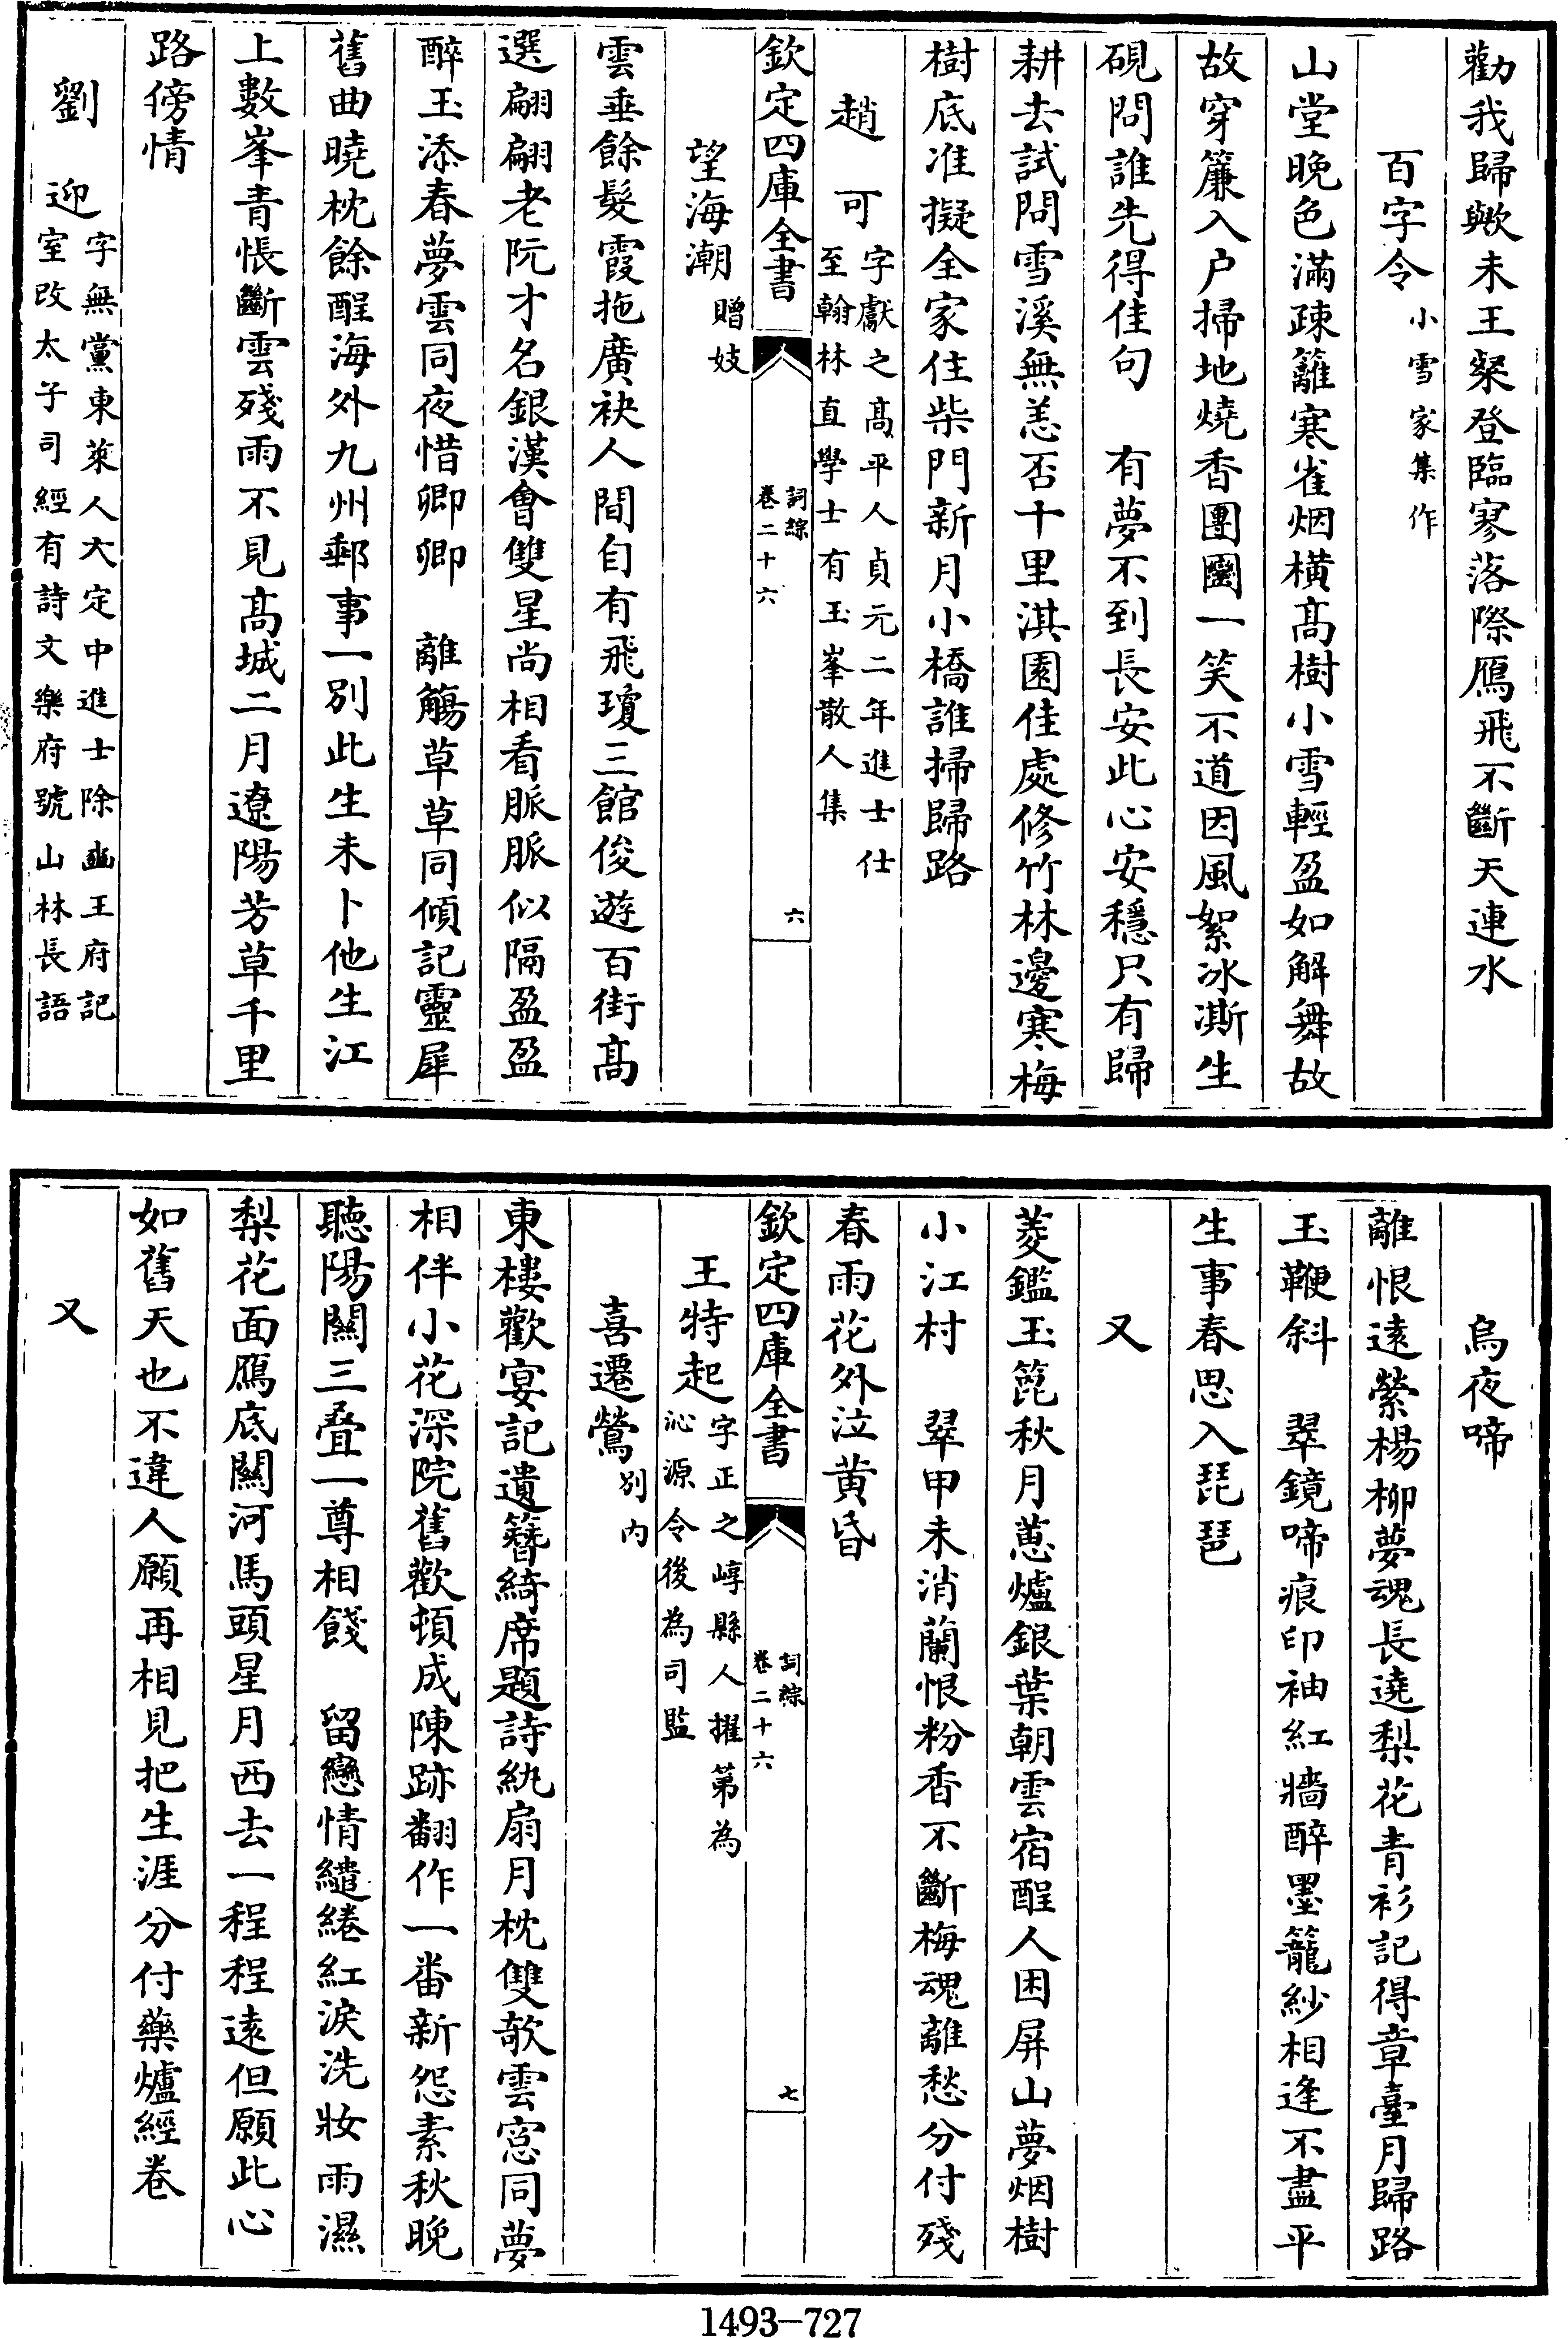 勸我歸歟未王粲登臨寥落際鴈飛不斷天連水
百字令小雪家集作
山堂晚色滿疎籬寒雀烟橫髙樹小雪輕盈如解舞故
故穿簾入户掃地燒香團圞一笑不道因風絮冰澌生
硯問誰先得佳句　有夢不到長安此心安穩只有歸
耕去試問雪溪無恙否十里淇園佳處修竹林邊寒梅
樹底准擬全家住柴門新月小橋誰掃歸路
趙　可字獻之髙平人貞元二年進士仕
至翰林直學士有玉峯散人集
欽定四庫全書
詞綜
卷二十六
六
望海潮贈妓
雲垂餘髮霞拖廣袂人間自有飛瓊三館俊遊百銜髙
選翩翩老阮才名銀漢會雙星尚相看脈脈似隔盈盈
醉玉添春夢雲同夜惜卿卿　離觴草草同傾記靈犀
舊曲曉枕餘酲海外九州郵事一别此生未卜他生江
上數峯青悵斷雲殘雨不見髙城二月遼陽芳草千里
路傍情
劉　迎字無黨東萊人大定中進士除豳王府記
室改太子司經有詩文樂府號山林長語
烏夜啼
離恨逺縈楊柳夢魂長遶梨花青衫記得章臺月歸路
玉鞭斜　翠鏡啼痕印袖紅牆醉墨籠紗相逢不盡平
生事春思入琵琶
又
菱鑑玉篦秋月蕙爐銀葉朝雲宿酲人困屏山夢烟樹
小江村　翠甲未消蘭恨粉香不斷梅魂離愁分付殘
春雨花外泣黄昏
欽定四庫全書
詞綜
卷二十六
七
王特起字正之崞縣人擢第為
沁源令後為司監
喜遷鶯别内
東樓歡宴記遺簪綺席題詩紈扇月枕雙欹雲窓同夢
相伴小花深院舊歡頓成陳跡翻作一番新怨素秋晚
聽陽關三叠一尊相餞　留戀情繾綣紅淚洗妝雨濕
梨花面鴈底關河馬頭星月西去一程程逺但願此心
如舊天也不違人願再相見把生涯分付藥爐經卷
又
1493-727